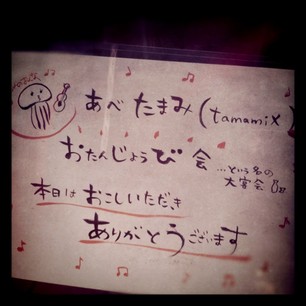 あべ たまみ (tamamix)
おたんじょうび 会
...という名の
大宴会
本日は おこしいただき
ありがとうございます